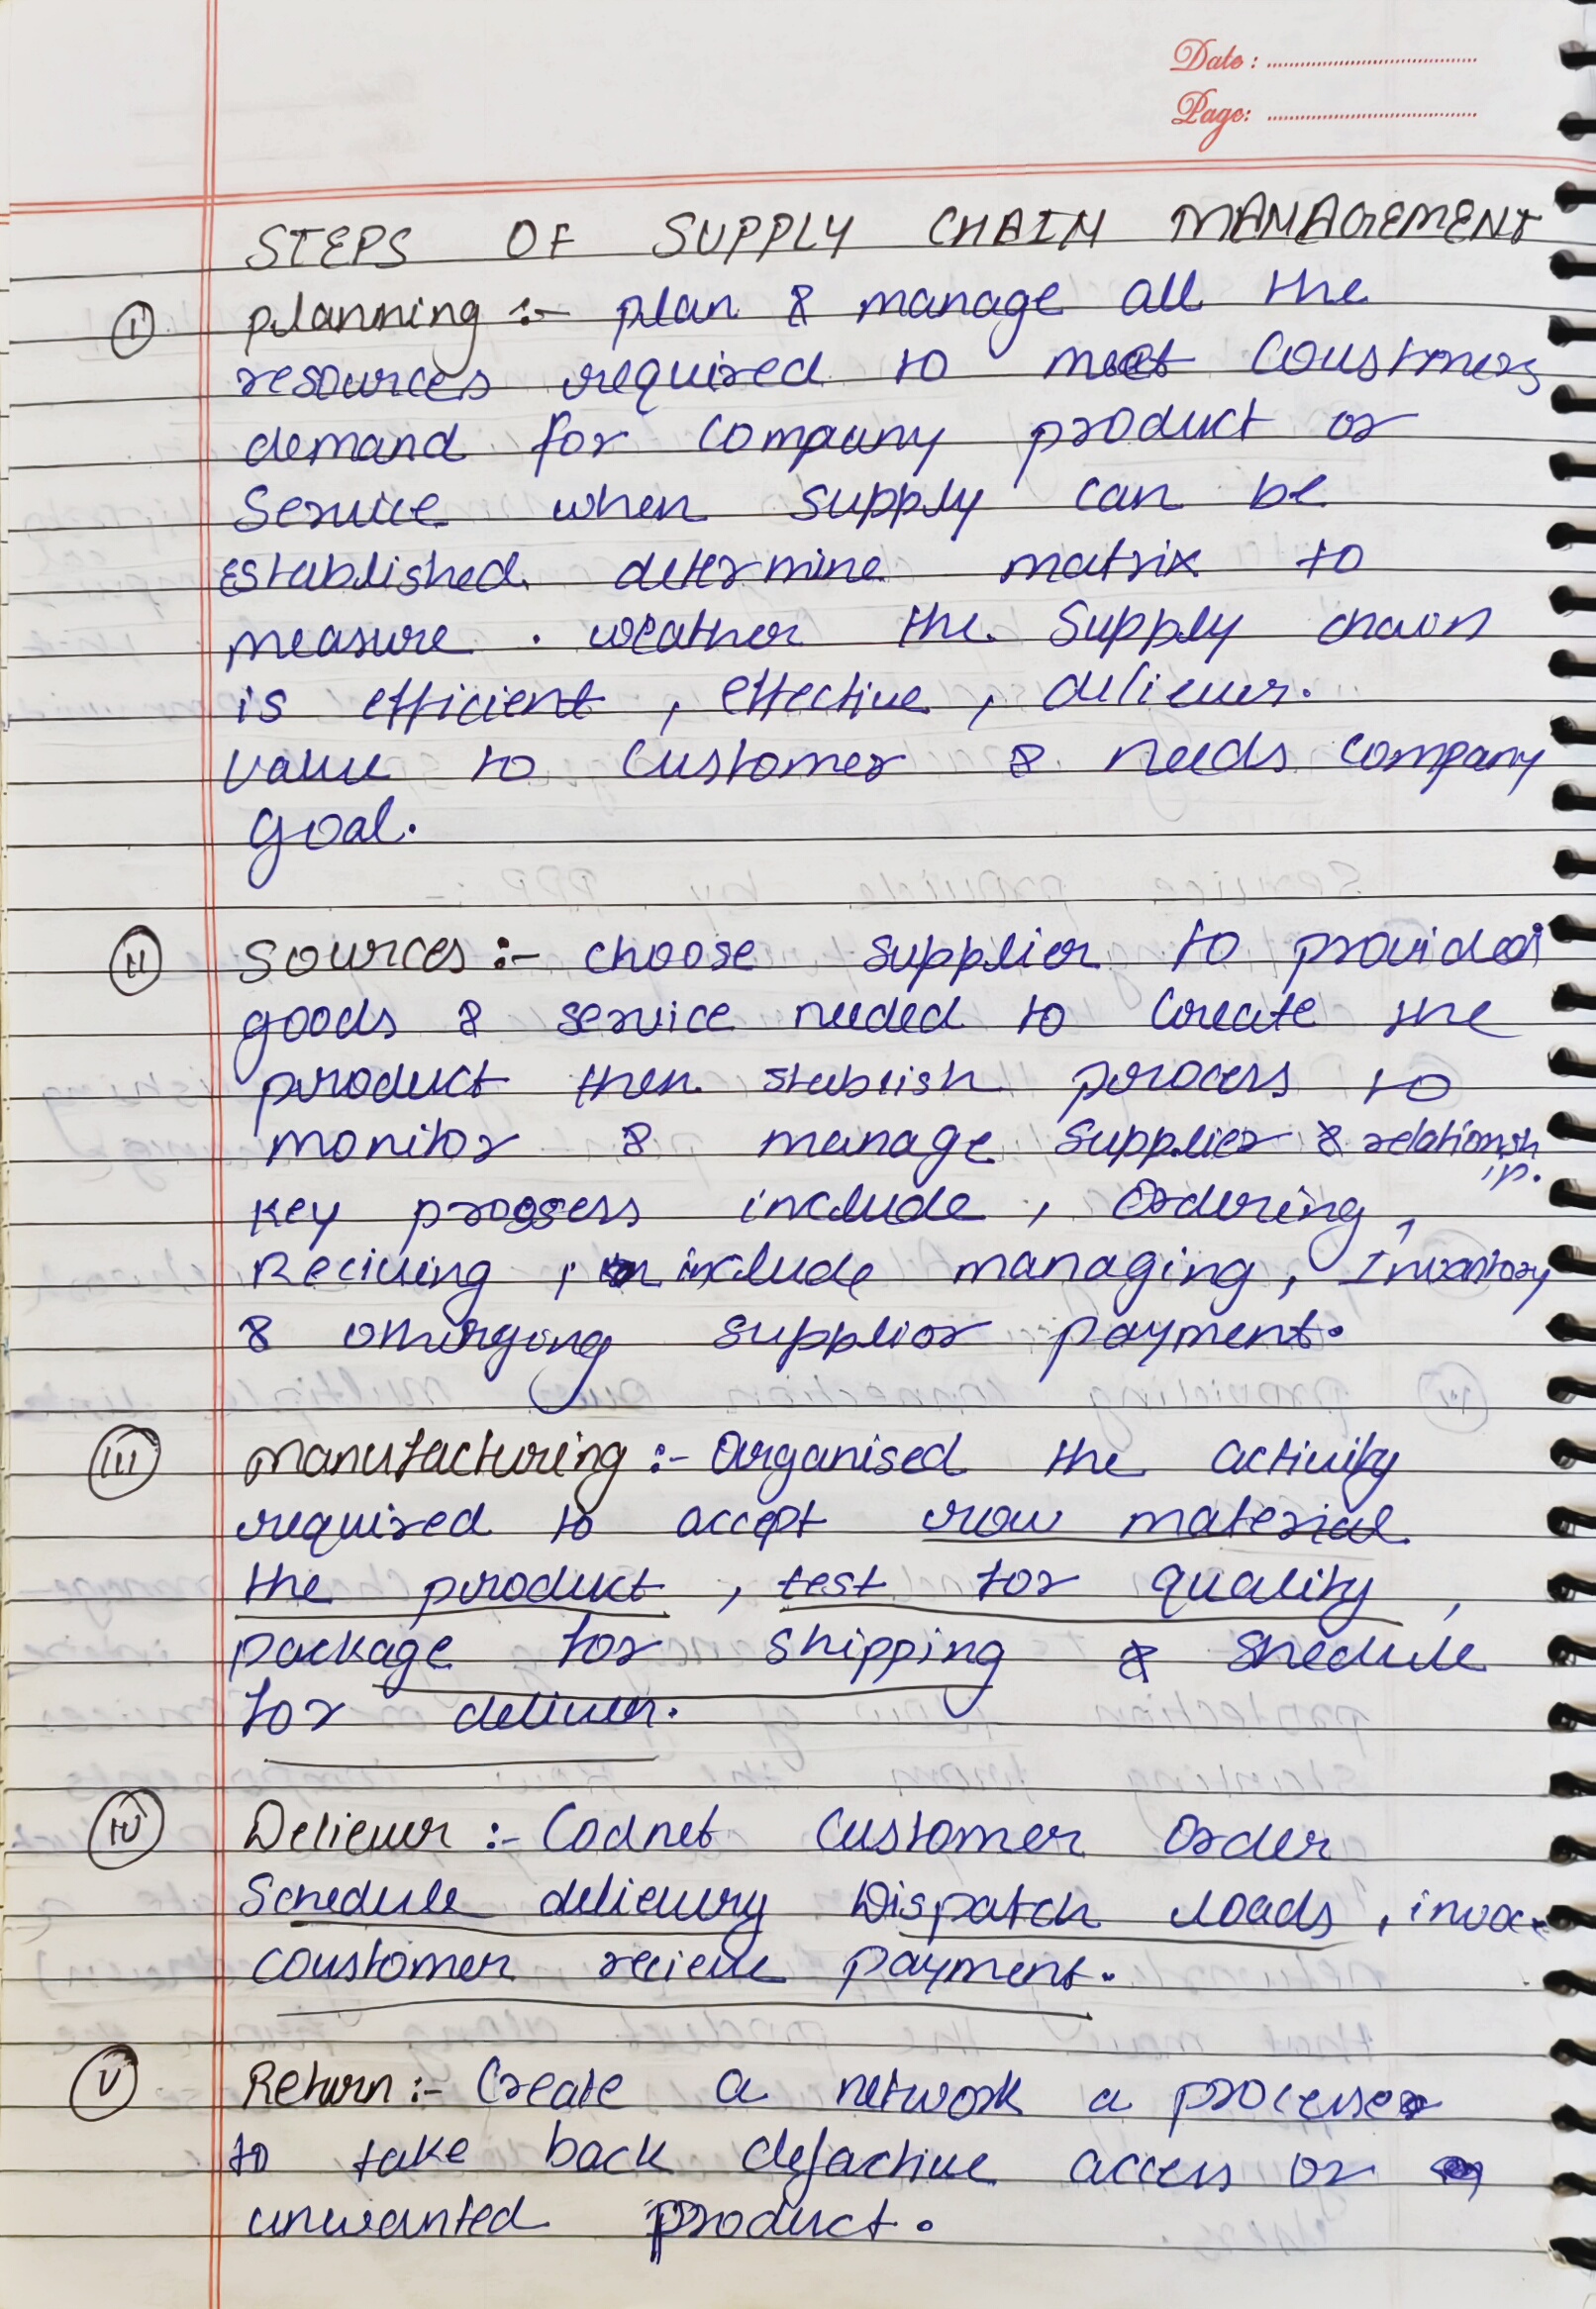 Date :
Page:
STEPS OF SUPPLY CHAIN MANAGEMENT
(I) planning :- plan & manage all the
resources required to meet Coustmers
demand for Company product or
Service when supply can be
established. determine matrix to
measure . weather the Supply chain
is efficient , effective , deliever.
value to Customer & needs company
goal.
(II) Sources :- choose supplier to provided
goods & service needed to Create the
product then stablish process to
monitor & manage Supplier & relationship.
key progsess include , Ordering,
Reciving , include managing, Inventory
& supplior payment.
(III) Manufacturing :- Organised the activity
required to accept row material
the product , test for quality ,
package for shipping & Shedule
for deliver.
(IV) Deliever :- Codnet Customer Order
Schedule delievery Dispatch loads , invoce
coustomer recieve payment.
(V) Return :- Create a network a processes
to take back defactive access or
unwanted product.